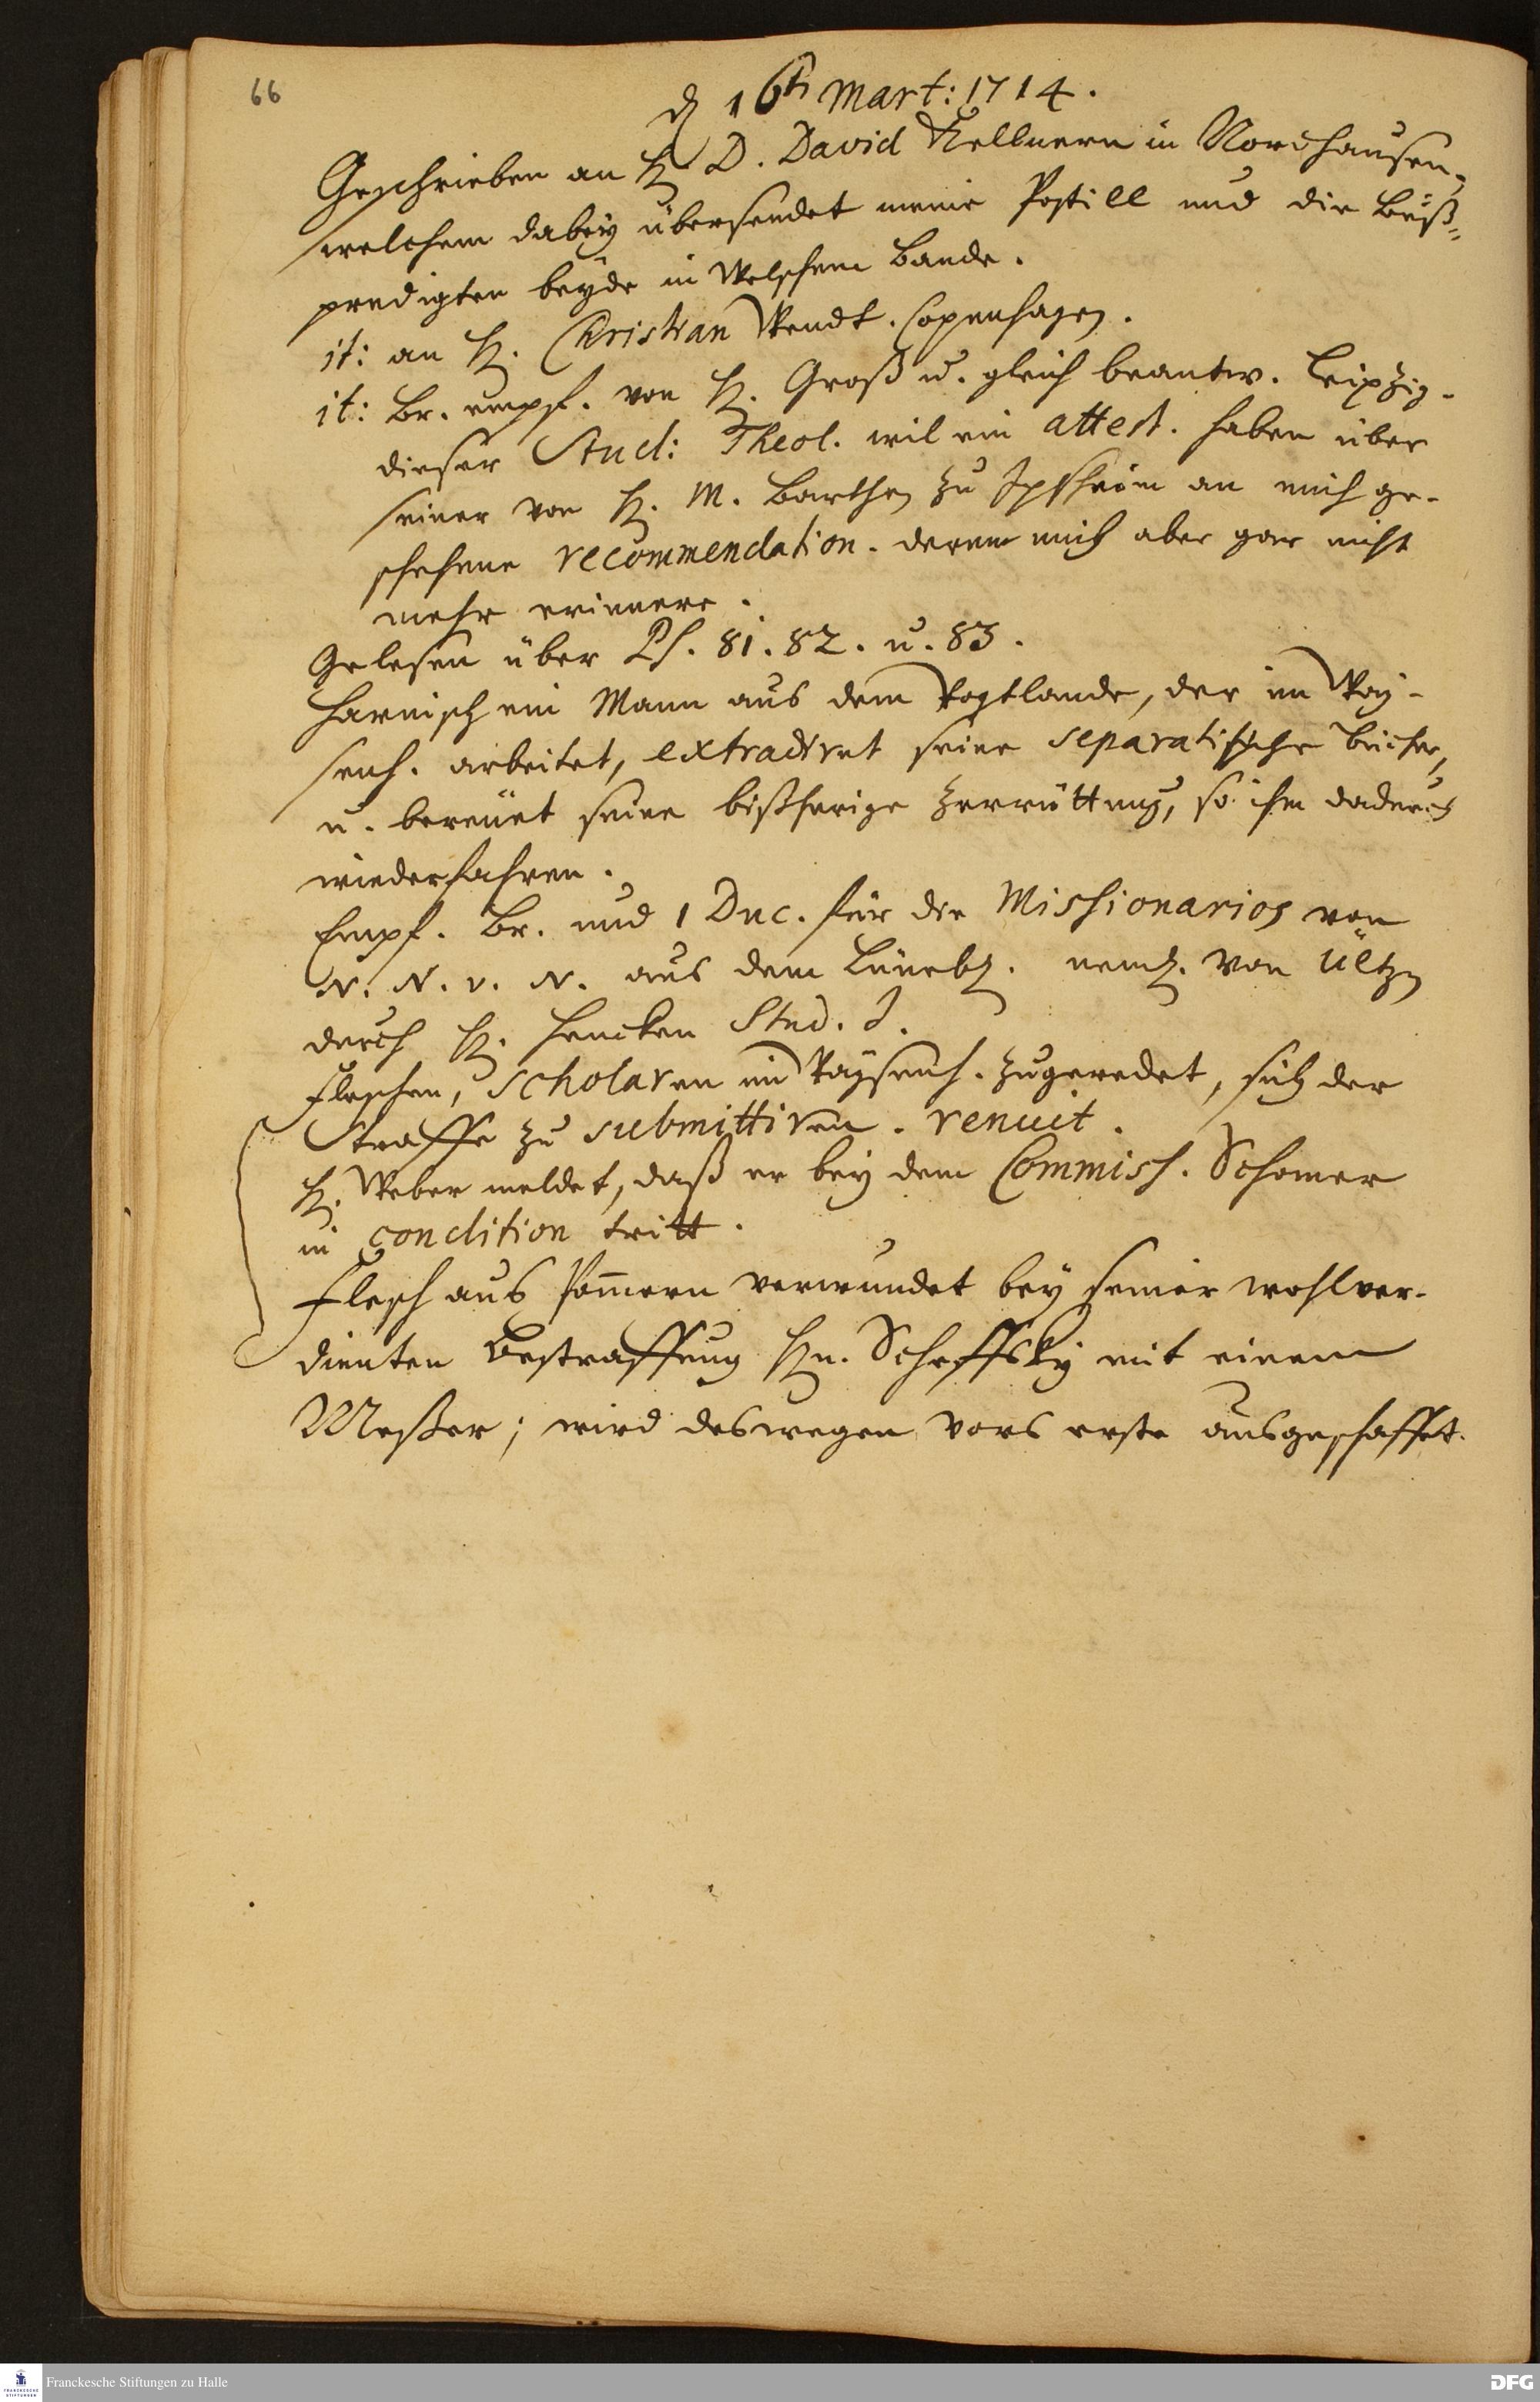 66
d 16th Mart: 1714.
Geschrieben an H. D. David Kellnern in Nordhausen,
welchem dabey übersendet meine Postill und die Buß-
predigten beyde in Welschem Bande.
it: an H. Christian Wendt. Copenhagen.
it: Br. empf. von H. Groß u. gleich beantw. Leipzig.
dieser Stud: Theol. wil ein attest. haben über
seiner von H. M. Barthen zu Ipsheim an mich ge-
schehene recommendation. deren mich aber gar nicht
mehr erinnere.
Gelesen über Ps. 81. 82. u. 83.
Harnisch ein Mann aus dem Vogtlande, der im Way-
senh. arbeitet, extradiret seine separatische Bücher,
u. bereuet seine bißherige Zerrüttung, so ihm dadurch
wiederfahren.
Empf. Br. und 1 Duc. für die Missionarios von
N. N. v. N. aus dem Lünebg. neml. von Ültzen
durch H. Hencken Stud. J.
Fleschen, Scholaren im Waysenh. zugeredet, sich der
Straffe zu submittiren. renuit.
H. Weber meldet, daß er bey dem Commiss. Schomer
in condition tritt.
Flesch aus Pommern verwundet bey seiner wohlver-
dienten Bestraffung Hn. Scheffsky mit einem
Meßer; wird deswegen vors erste ausgeschaffet.
Franckesche Stiftungen zu Halle
DFG